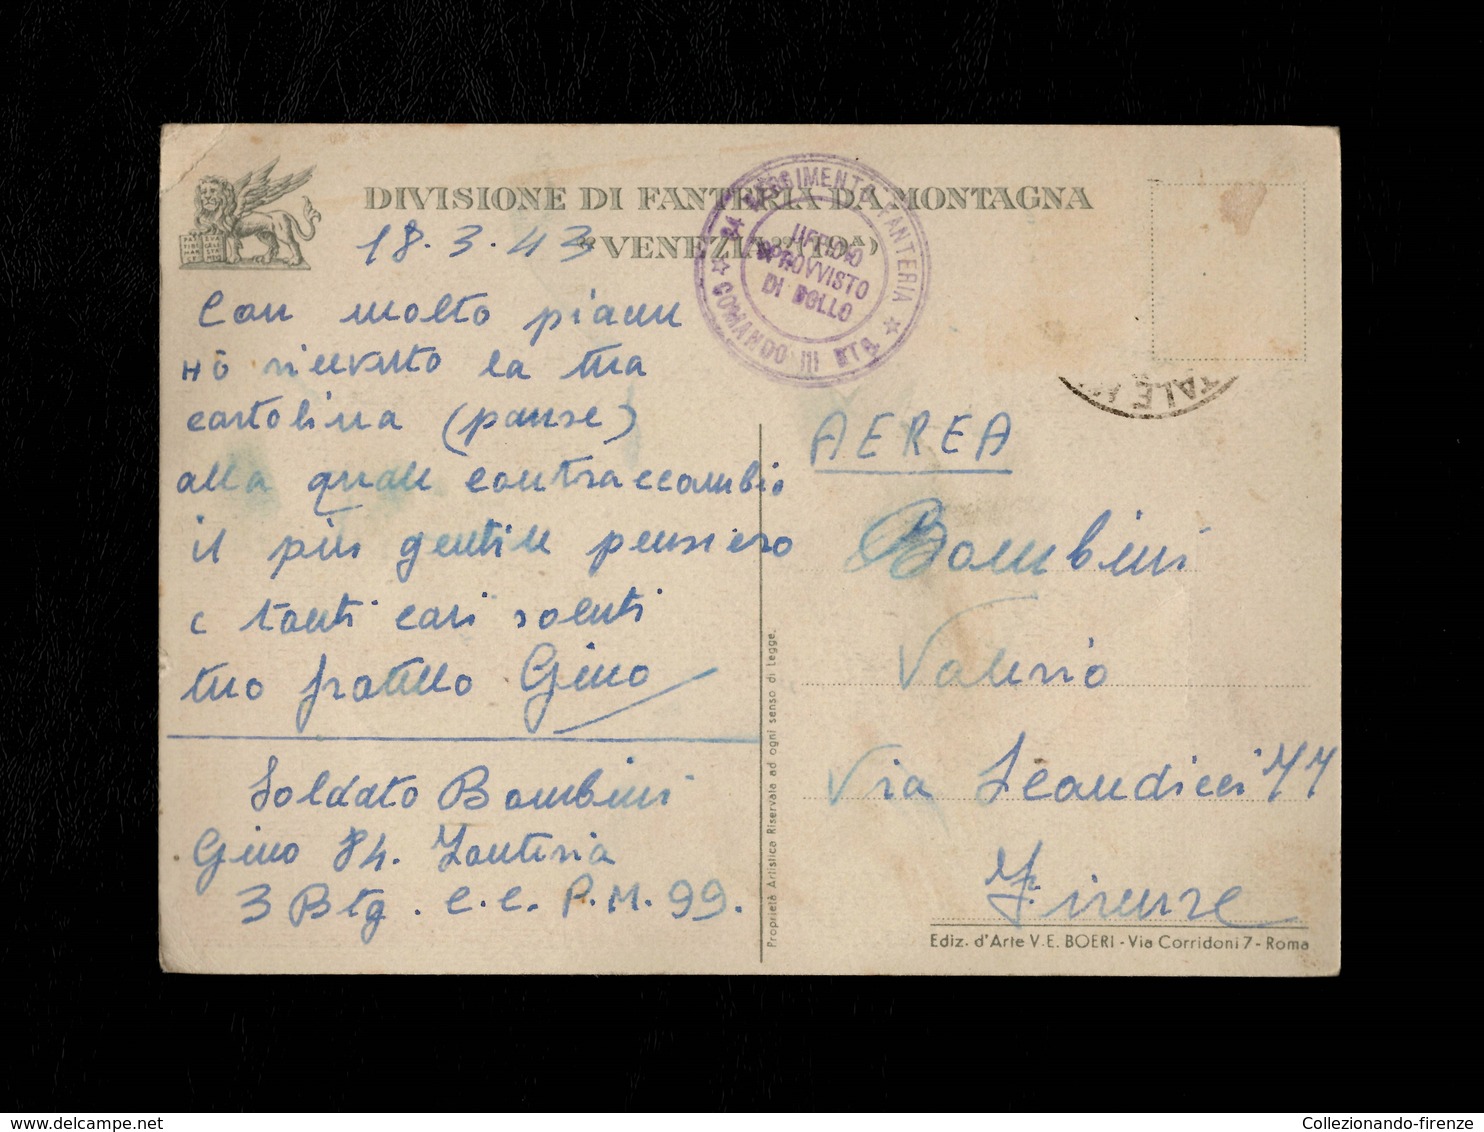 DIVISIONE DI FANTERIA DA MONTAGNA
« VENEZIA »
18.3.43
84 REGGIMENTO FANTERIA
COMANDO III BTG.
UFFICIO
SPROVVISTO
DI BOLLO
Con molto piacer
ho ricevuto la tua
cartolina (pause)
alla quale contraccambio
il più gentile pensiero
e tanti cari saluti
tuo fratello Gino
Soldato Bambini
Gino 84. Fanteria
3 Btg. C.C. P.M. 99.
TALE
AEREA
Bambini
Valerio
Via Scandicci 77
Firenze
Proprietà Artistica Riservata ad ogni senso di Legge.
Ediz. d'Arte V.E. BOERI - Via Corridoni 7 - Roma
Collezionando-firenze
delcampe.net